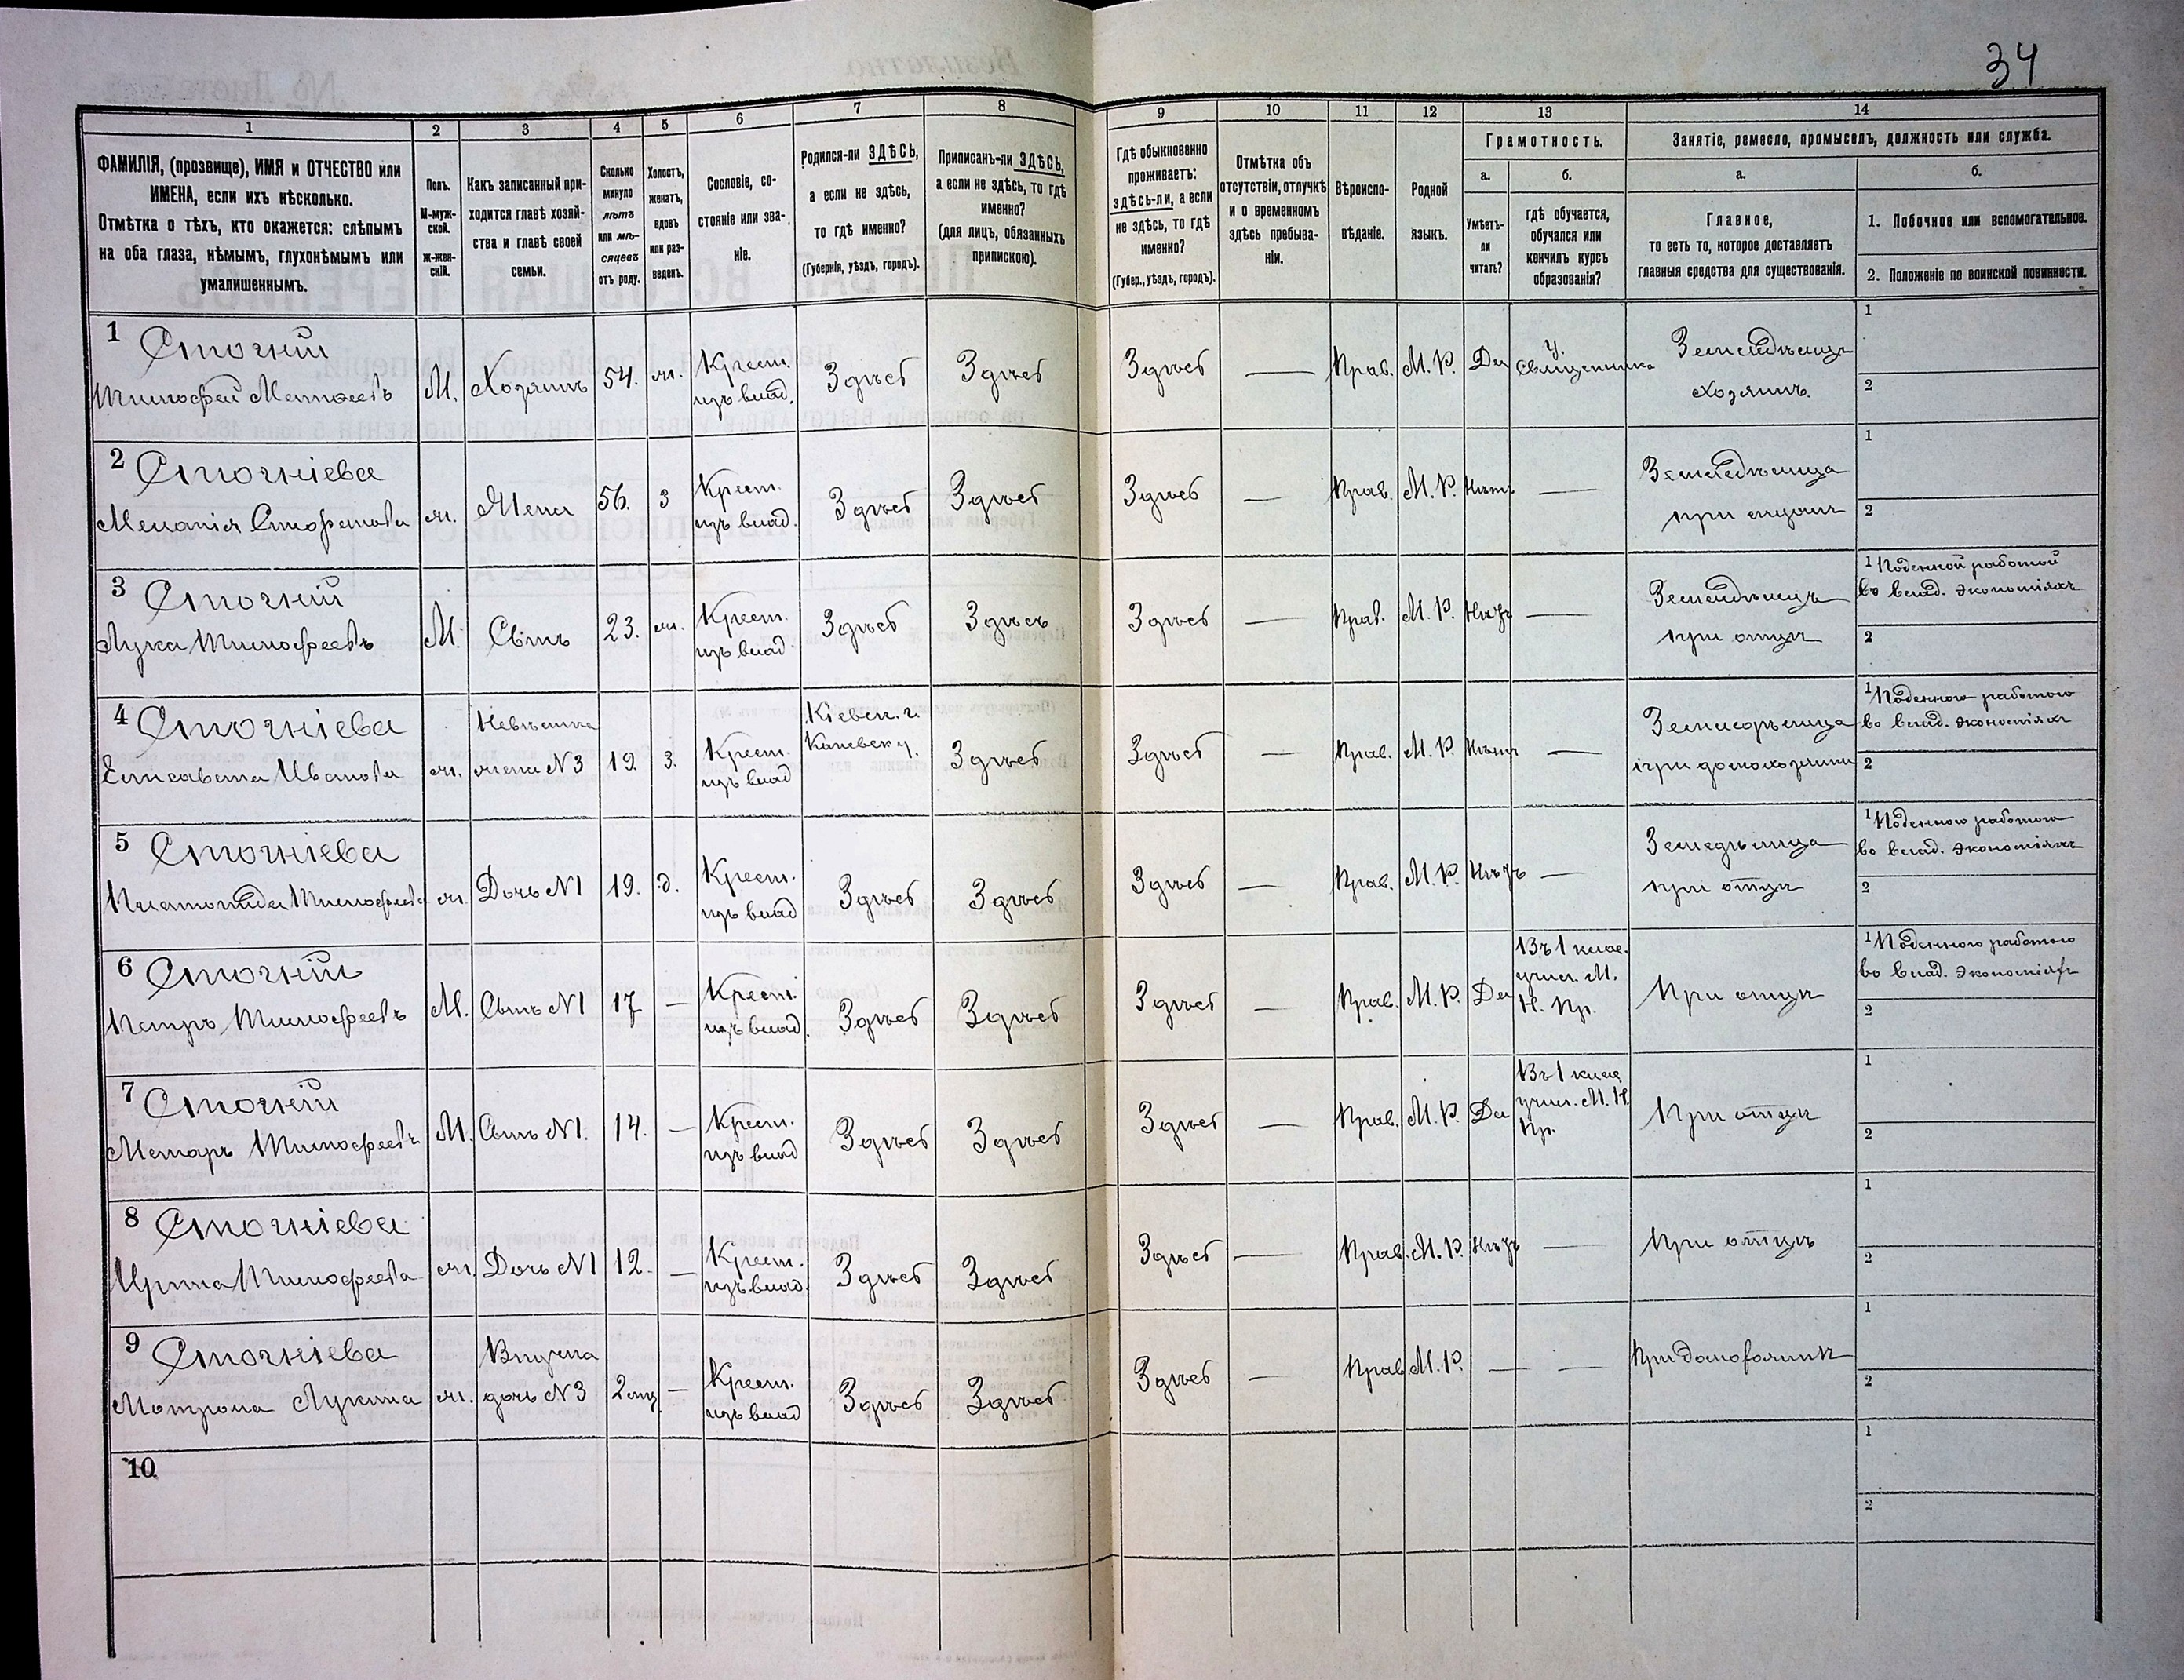 34
1
2
3
4
5
6
7
8
9
10
11
12
13
14
ФАМИЛІЯ, (прозвище), ИМЯ и ОТЧЕСТВО или
ИМЕНА, если ихъ нѣсколько.
Отмѣтка о тѣхъ, кто окажется: слѣпымъ
на оба глаза, нѣмымъ, глухонѣмымъ или
умалишеннымъ.
Полъ.
М-муж-
ской.
Ж-жен-
скій.
Какъ записанный при-
ходится главѣ хозяй-
ства и главѣ своей
семьи.
Сколько
минуло
лѣтъ
или мѣ-
сяцевъ
отъ роду.
Холостъ,
женатъ,
вдовъ
или раз-
веденъ.
Сословіе, со-
стояніе или зва-
ніе.
Родился-ли ЗДѢСЬ,
а если не здѣсь,
то гдѣ именно?
(Губернія, уѣздъ, городъ).
Приписанъ-ли ЗДѢСЬ,
а если не здѣсь, то гдѣ
именно?
(для лицъ, обязанныхъ
припискою).
Гдѣ обыкновенно
проживаетъ:
здѣсь-ли, а если
не здѣсь, то гдѣ
именно?
(Губер., уѣздъ, городъ).
Отмѣтка объ
отсутствіи, отлучкѣ
и о временномъ
здѣсь пребыва-
ніи.
Вѣроиспо-
вѣданіе.
Родной
языкъ.
Грамотность.
а.
Умѣетъ-
ли
читать?
б.
гдѣ обучается,
обучался или
кончилъ курсъ
образованія?
Занятіе, ремесло, промыселъ, должность или служба.
а.
Главное,
то есть то, которое доставляетъ
главныя средства для существованія.
б.
1. Побочное или вспомогательное.
2. Положеніе по воинской повинности.
1 Сточній
Тимофей Матвеевъ
М. Хозяинъ 54. ж. Крест.
изъ влад. Здѣсь Здѣсь Здѣсь — Прав. М. Р. Да У.
Священника Земледѣлецъ
хозяинъ. 1
2
2 Сточніева
Меланія Стефанова
ж. Жена 56. З Крест.
изъ влад. Здѣсь Здѣсь Здѣсь — Прав. М. Р. Нѣтъ — Земледѣлица
при 1
2
3 Сточній
Лука Тимофеевъ
М. Сынъ 23. ж. Крест.
изъ влад. Здѣсь Здѣсь Здѣсь — Прав. М. Р. Нѣтъ — Земледѣлецъ
при отцѣ 1 Поденной работой
во влад. экономіяхъ
2
4 Сточніева
Елисавета Иванова
ж. Невѣстка
жена N3 19. З. Крест.
изъ влад Кіевск. г.
Каневск у. Здѣсь Здѣсь — Прав. М. Р. Нѣтъ — Земледѣлица
при домохозяинѣ 1 Поденною работою
во влад. экономіяхъ
2
5 Сточніева
Платонида Тимофеева
ж. Дочь N1 19. д. Крест.
изъ влад Здѣсь Здѣсь Здѣсь — Прав. М. Р. Нѣтъ — Земледѣлица
при отцѣ 1 Поденною работою
во влад. экономіяхъ
2
6 Сточній
Петръ Тимофеевъ
М. Сынъ N1 17 — Крест.
изъ влад. Здѣсь Здѣсь Здѣсь — Прав. М. Р. Да Въ 1 клас.
учил. М.
Н. Пр. При отцѣ 1 Поденною работою
во влад. экономіяхъ
2
7 Сточній
Тимофеевъ
М. Сынъ N1. 14. — Крест.
изъ влад Здѣсь Здѣсь Здѣсь — Прав. М. Р. Да Въ 1 клас
учил. М. Н.
Пр. При отцѣ 1
2
8 Сточніева
Ирина Тимофеева
ж. Дочь N1 12. — Крест.
изъ влад. Здѣсь Здѣсь Здѣсь — Прав. М. Р. Нѣтъ — При отцѣ 1
2
9 Сточніева
Мотрона Лукина
ж. Внучка
дочь N3 2 мц — Крест.
изъ влад Здѣсь Здѣсь Здѣсь — Прав М. Р. — — При домохозяинѣ 1
2
10
1
2